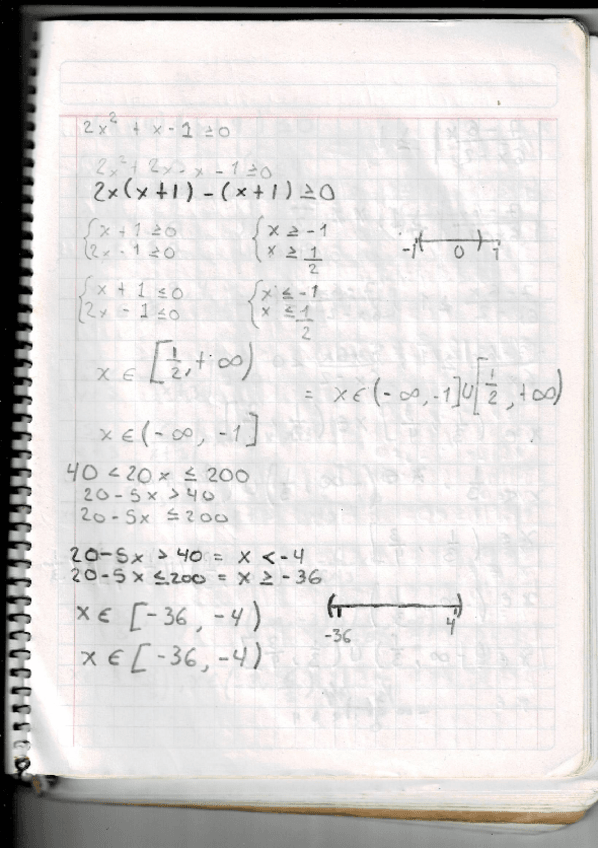 2x² + x - 1 ≥ 0
2x² + 2x - x - 1 ≥ 0
2x(x+1) - (x+1) ≥ 0
{ x + 1 ≥ 0 { x ≥ -1
{ 2x - 1 ≥ 0 { x ≥ 1/2
-1 0 1
{ x + 1 ≤ 0 { x ≤ -1
{ 2x - 1 ≤ 0 { x ≤ 1/2
x ∈ [1/2, +∞)
= x ∈ (-∞, -1] ∪ [1/2, +∞)
x ∈ (-∞, -1]
40 < 20x ≤ 200
20-5x > 40
20-5x ≤ 200
20-5x > 40 = x < -4
20-5x ≤ 200 = x ≥ -36
x ∈ [-36, -4)
-36 4
x ∈ [-36, -4)